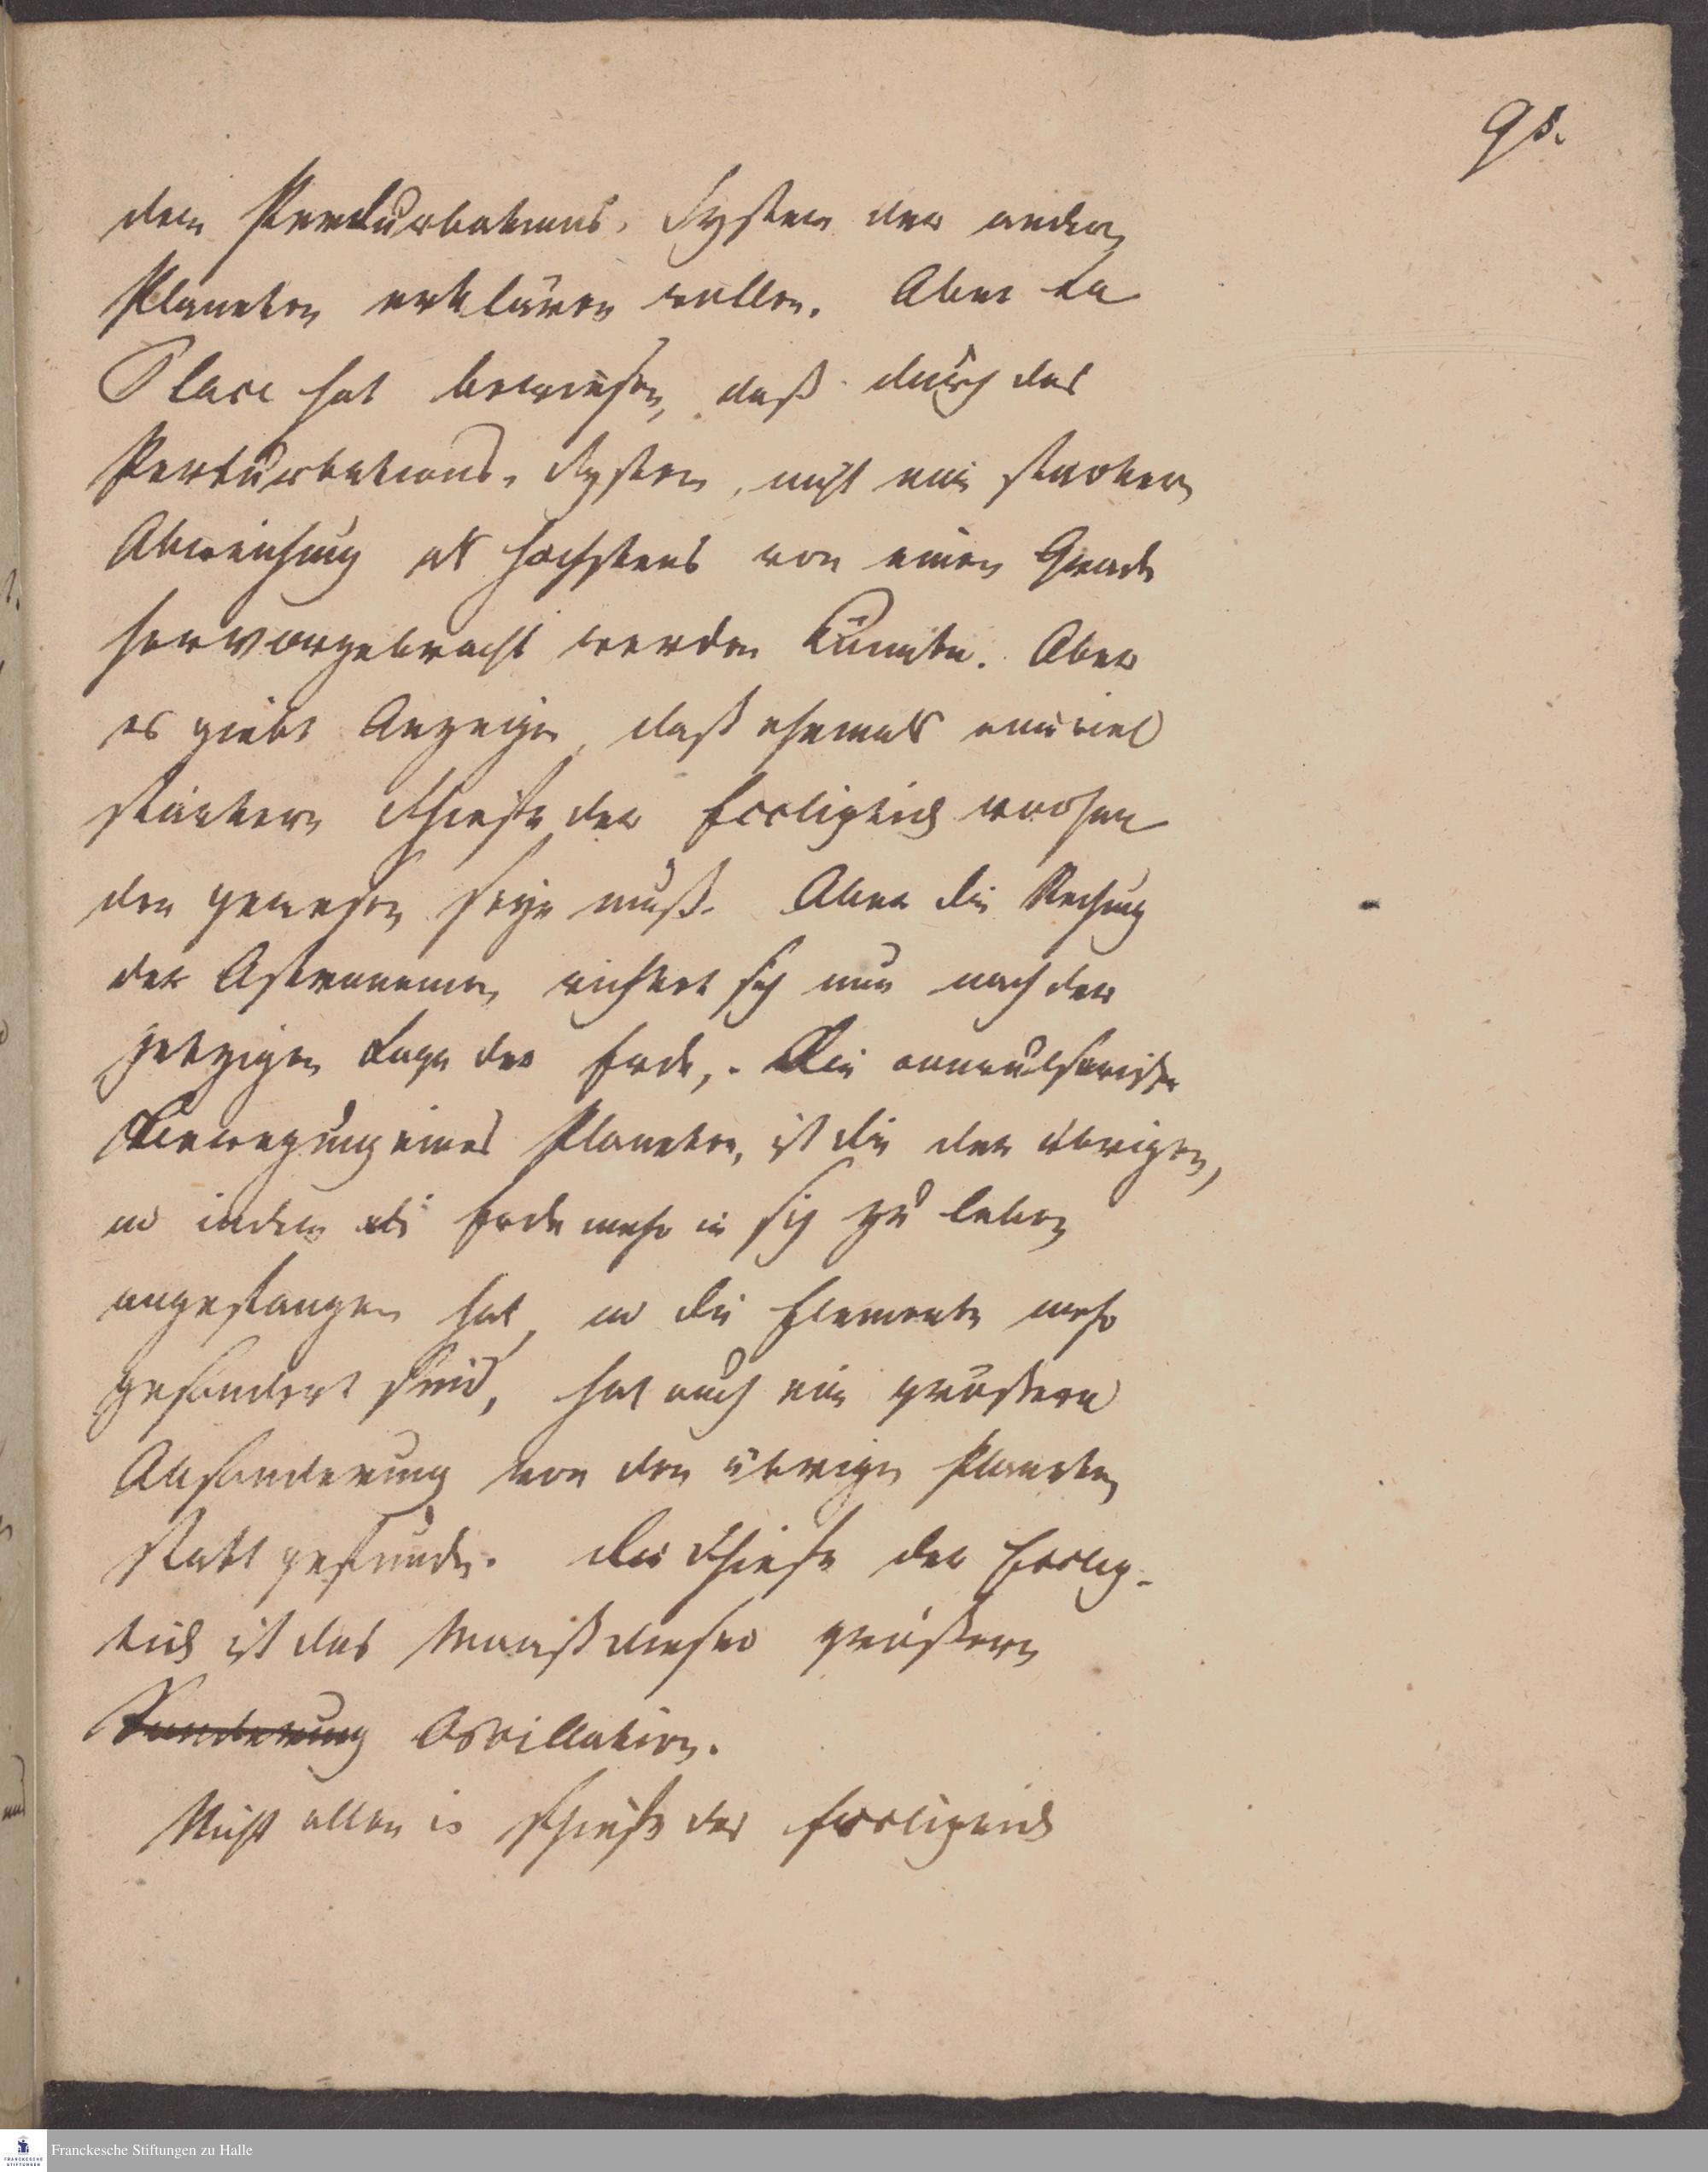 98.
dem Perturbations, System der andern
Planeten erklären wollen. Aber La
Place hat bewiesen, daß durch das
Perturbations, System, nicht eine starkere
Abweichung als höchstens von einem Grade
hervorgebracht werden könnte. Aber
es giebt Anzeigen, daß ehemals eine viel
stärkere Schiefe der Eccliptick vorhan
den gewesen seyn muß. Aber die Rechnung
der Astronomen richtet sich nur nach der
jetzigen Lage der Erde,. Die
Bewegung eines Planeten, ist die der übrigen,
u indem die Erde mehr in sich zu leben
angefangen hat, u die Elemente mehr
gesondert sind, hat auch eine größere
Absonderung von den übrigen Planeten
statt gefunden. Die Schiefe der Ecclip-
tick ist das Maaß dieser größern
Sonderung Oscillation.
Nicht allein in Schiefe der Eccliptick
Franckesche Stiftungen zu Halle